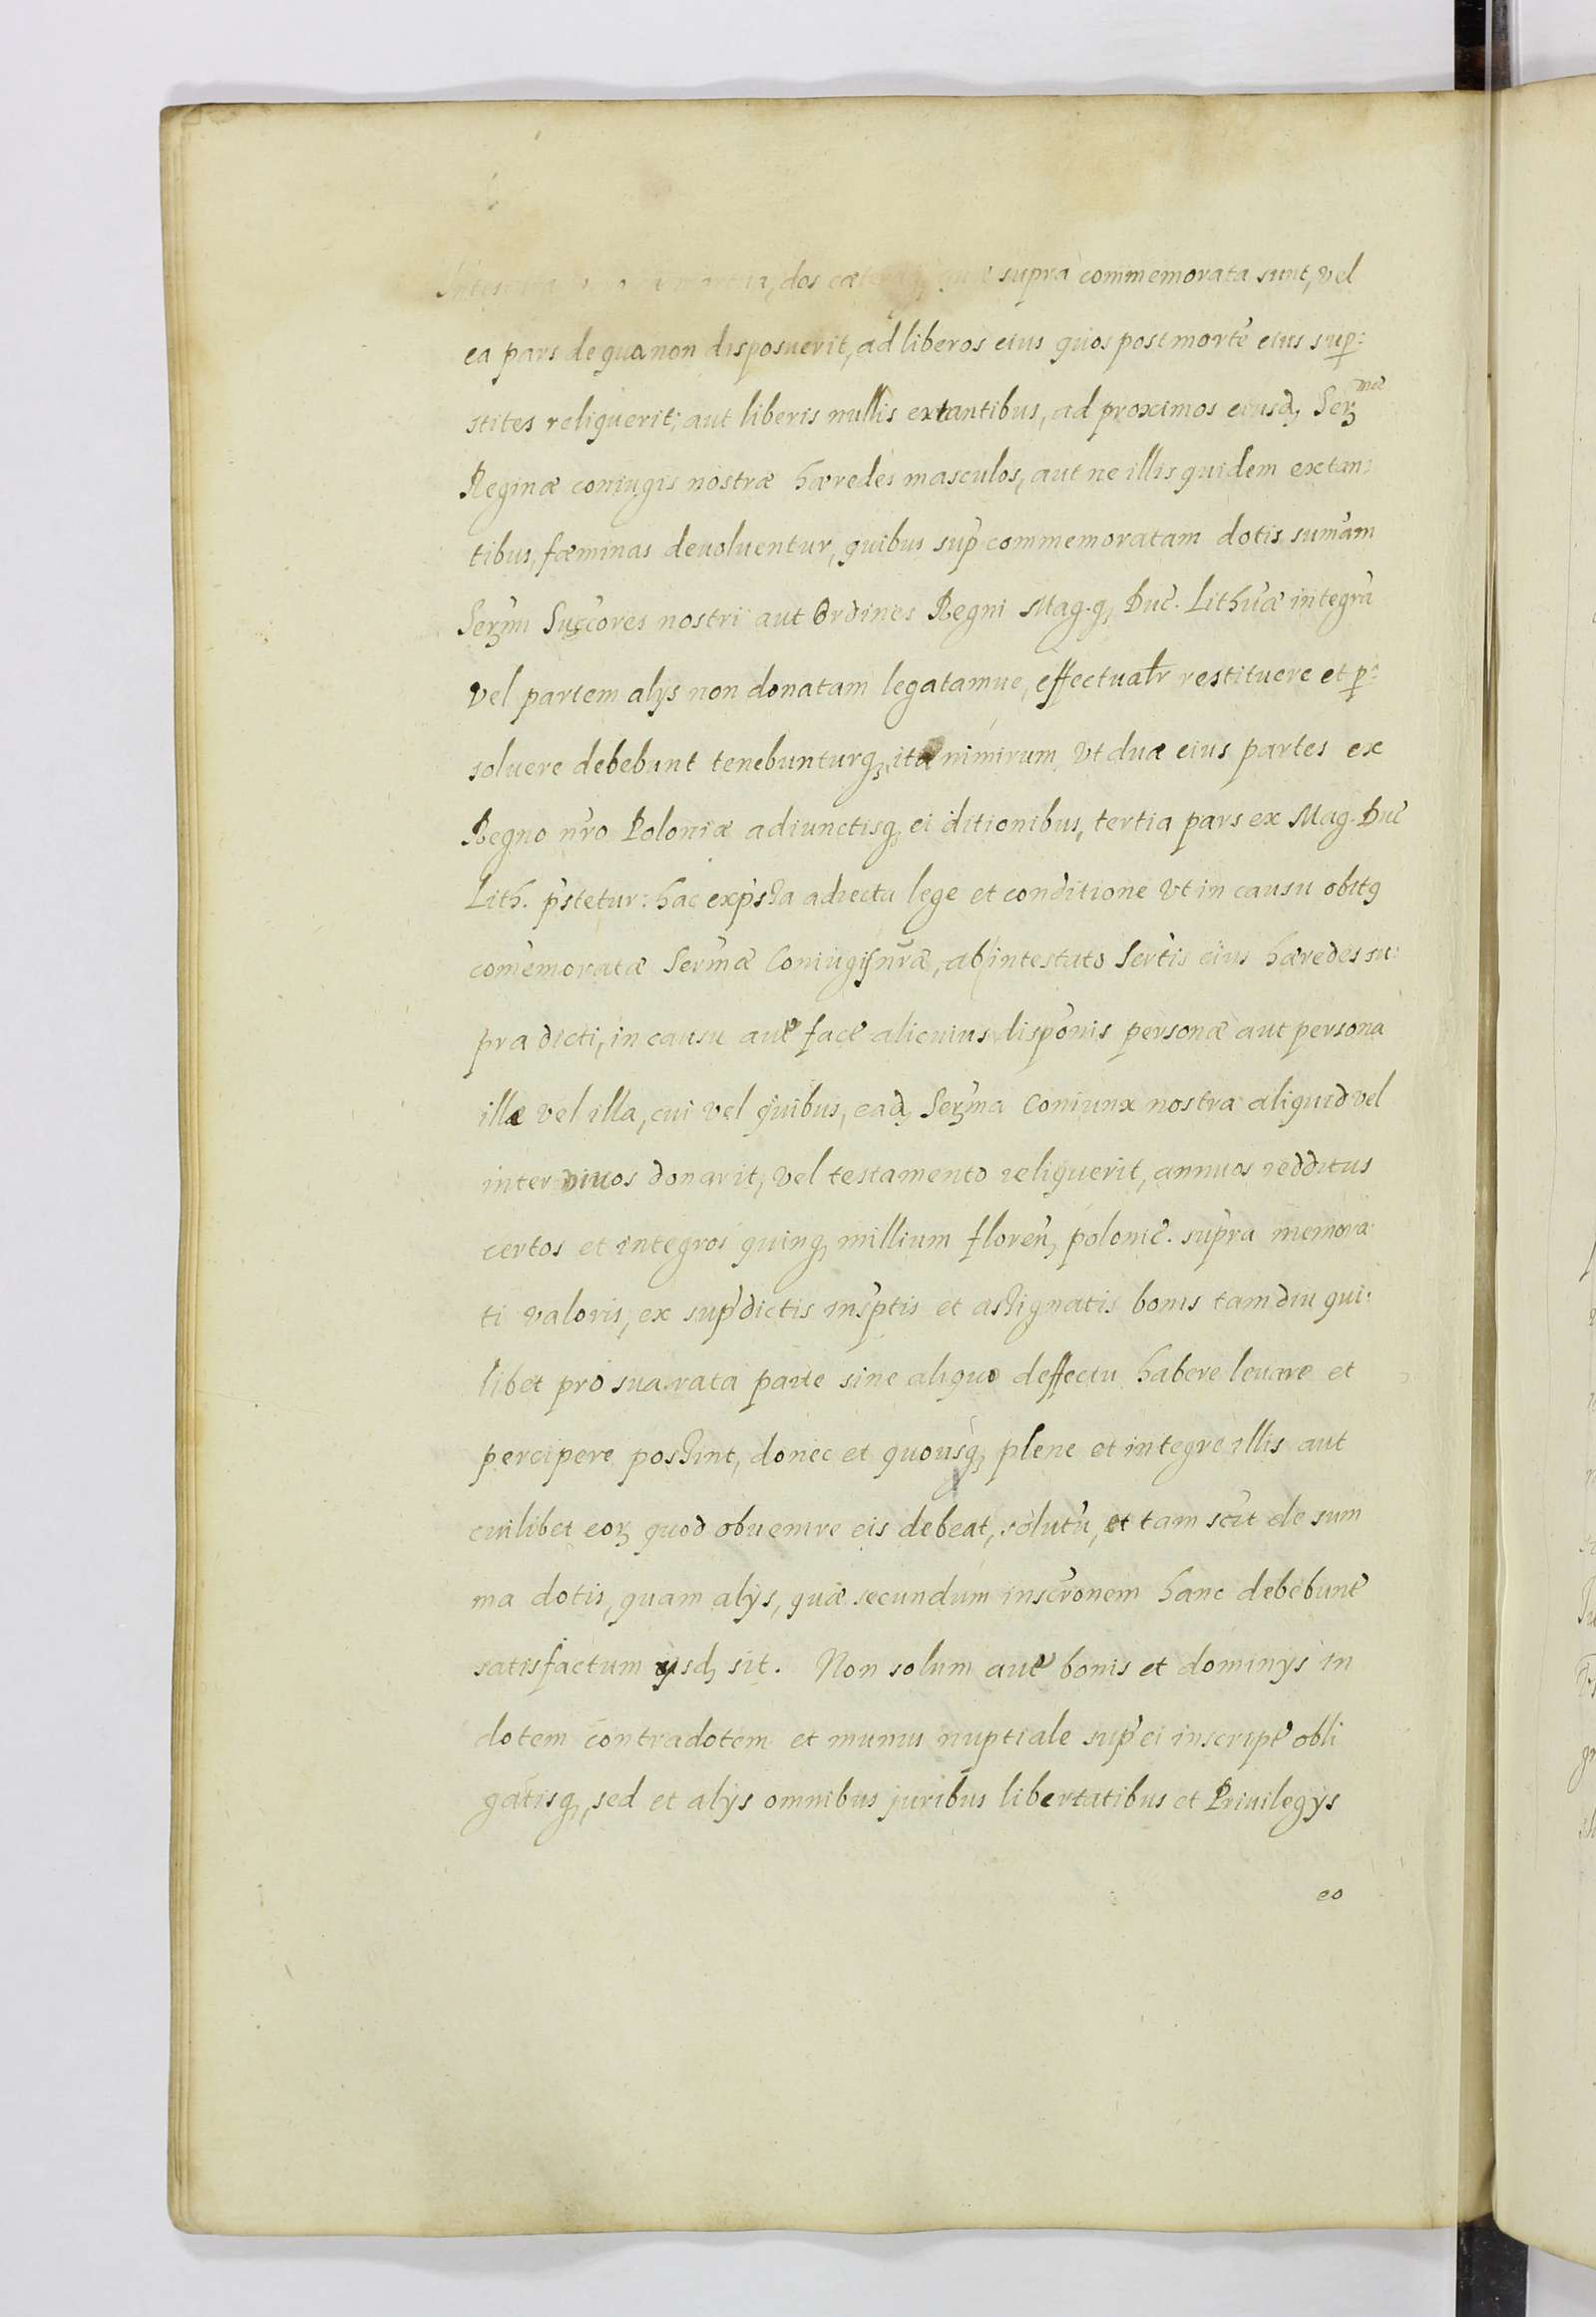 dos supra commemorata sunt, vel
ea pars de qua non disposuerit, ad liberos eius quos post mortẽ eius sup:
stites reliquerit, aut liberis nullis extantibus, ad proximos eiusd, Serᵐᵃᵉ
Reginæ coniugis nostræ hæredes masculos, aut ne illis quidem extan:
tibus, fæminas devoluentur, quibus sup commemoratam dotis sumãm
Serm̃i Succ̃ores nostri aut Ordines Regni Mag.q, Duc̃. Lithũæ integrã
vel partem alÿs non donatam legatamue, effectualr restituere et p:
soluere debebunt tenebunturq, ita nimirum vt duæ eius partes ex
Regno nr̃o Poloniæ adiunctisq, ei ditionibus, tertia pars ex Mag. Duc̃
Lith. p̃stetur: hac exp̃ssa adiecta lege et conditione vt in causu obitq
com̃emoratæ Serm̃æ Coniugis nr̃æ, ab intestato Sertis eius hæredes su:
pra dicti, in causu autẽ facẽ alicuius dispõnis personæ aut persona
illæ vel illa, cui vel quibus, ead, Serm̃a Coniunx nostra aliquid vel
inter viuos donarit, vel testamento reliquerit, annuos redditus
certos et integros quinq, millium floreñ, polonic̃. supra memora
ti valoris, ex sup̃dictis insp̃tis et assignatis bonis tamdiu qui:
libet pro sua rata parte sine aliquo deffectu habere leuare et
percipere possint, donec et quousq, plene et integre illis aut
cuilibet eor, quod obuenire eis debeat, solutũ, et tam sc̃it de sum
ma dotis, quam alÿs, quæ secundum inscr̃onem hanc debebunt
satisfactum ÿsd, sit. Non solum autẽ bonis et dominÿs in
dotem contradotem et munus nuptiale sup̃ ei inscriptẽ obli
gatisq, sed et alÿs omnibus juribus libertatibus et Priuilegÿs
eo